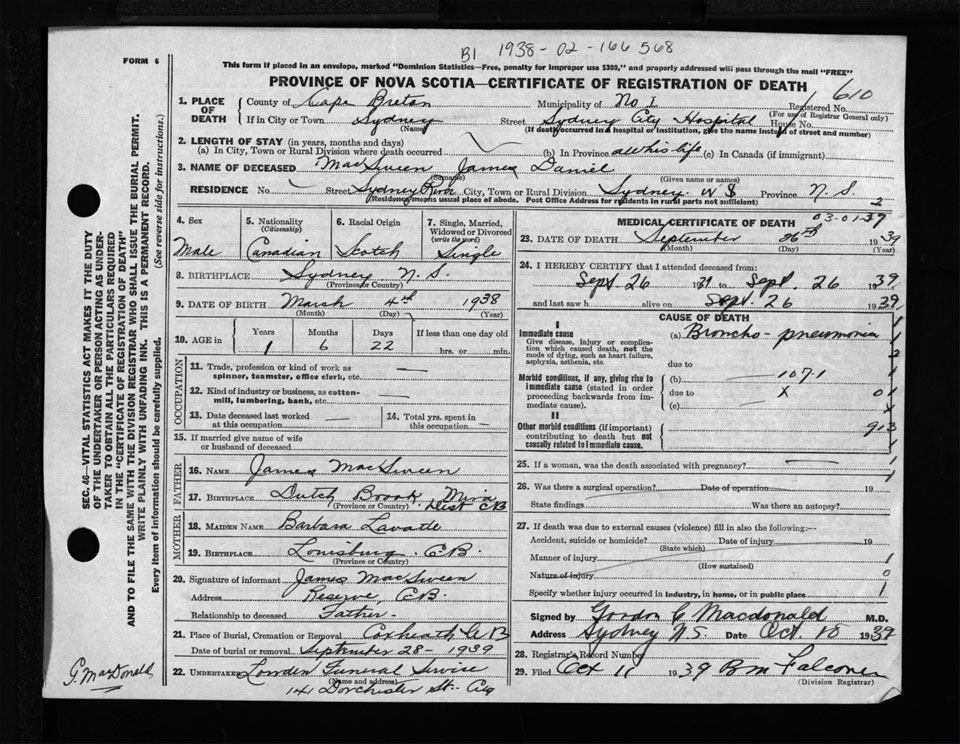 B1 1938-02-166568
FORM 6
This form if placed in an envelope, marked "Dominion Statistics—Free, penalty for improper use $300," and properly addressed will pass through the mail "FREE"
PROVINCE OF NOVA SCOTIA—CERTIFICATE OF REGISTRATION OF DEATH
610
1. PLACE OF DEATH
County of Cape Breton Municipality of No 1 Registered No.
(For use of Registrar General only)
If in City or Town Sydney Street Sydney City Hospital House No.
(Name) (If death occurred in a hospital or institution, give the name instead of street and number)
2. LENGTH OF STAY (in years, months and days)
(a) In City, Town or Rural Division where death occurred (b) In Province all his life (c) In Canada (if immigrant)
3. NAME OF DECEASED MacSween James Daniel
(Surname) (Given name or names)
RESIDENCE No. Street Sydney River City, Town or Rural Division Sydney Province N.S.
(Residence means usual place of abode. Post Office Address for residents in rural parts not sufficient) 2
4. Sex
Male
5. Nationality
(Citizenship)
Canadian
6. Racial Origin
Scotch
7. Single, Married,
Widowed or Divorced
(write the word)
Single
8. BIRTHPLACE Sydney N.S.
(Province or Country)
9. DATE OF BIRTH March 4th 1938
(Month) (Day) (Year)
10. AGE in
Years
1
Months
6
Days
22
If less than one day old
hrs. or min.
OCCUPATION
11. Trade, profession or kind of work as
spinner, teamster, office clerk, etc. —
12. Kind of industry or business, as cotton-
mill, lumbering, bank, etc. —
13. Date deceased last worked
at this occupation —
14. Total yrs. spent in
this occupation —
15. If married give name of wife
or husband of deceased
FATHER
16. NAME James MacSween
17. BIRTHPLACE Dutch Brook Mira
(Province or Country) Dist CB
MOTHER
18. MAIDEN NAME Barbara Lavatte
19. BIRTHPLACE Louisburg C.B.
(Province or Country)
20. Signature of informant James MacSween
Address Reserve, CB
Relationship to deceased Father
21. Place of Burial, Cremation or Removal Coxheath C.B
Date of burial or removal September 28 - 1939
22. UNDERTAKER Lowden Funeral Service
(Name and address)
141 Dorchester St. City
MEDICAL CERTIFICATE OF DEATH
03-01-39
23. DATE OF DEATH September 26th 1939
(Month) (Day)
24. I HEREBY CERTIFY that I attended deceased from:
Sept. 26 1939 to Sept. 26 1939
and last saw h alive on Sept. 26 1939
CAUSE OF DEATH
I
Immediate cause
Give disease, injury or complica-
tion which caused death, not the
mode of dying, such as heart failure,
asphyxia, asthenia, etc.
(a) Broncho-pneumonia
due to
Morbid conditions, if any, giving rise to
immediate cause (stated in order
proceeding backwards from im-
mediate cause).
(b) 107-1
due to X
(c)
II
Other morbid conditions (if important)
contributing to death but not
causally related to immediate cause.
913
25. If a woman, was the death associated with pregnancy? —
26. Was there a surgical operation? Date of operation 19
State findings Was there an autopsy?
27. If death was due to external causes (violence) fill in also the following:—
Accident, suicide or homicide? Date of injury 19
(State which)
Manner of injury 1
(How sustained)
Nature of injury 0
Specify whether injury occurred in industry, in home, or in public place 1
Signed by Gordon C Macdonald M.D.
Address Sydney N.S. Date Oct. 10 1939
28. Registrar's Record Number
29. Filed Oct 11 1939 B M Falcone
(Division Registrar)
SEC. 46—VITAL STATISTICS ACT MAKES IT THE DUTY
OF THE UNDERTAKER OR PERSON ACTING AS UNDER-
TAKER TO OBTAIN ALL THE PARTICULARS REQUIRED
IN THE "CERTIFICATE OF REGISTRATION OF DEATH"
AND TO FILE THE SAME WITH THE DIVISION REGISTRAR WHO SHALL ISSUE THE BURIAL PERMIT.
WRITE PLAINLY WITH UNFADING INK. THIS IS A PERMANENT RECORD.
Every item of information should be carefully supplied. (See reverse side for instructions.)
G. MacDonald